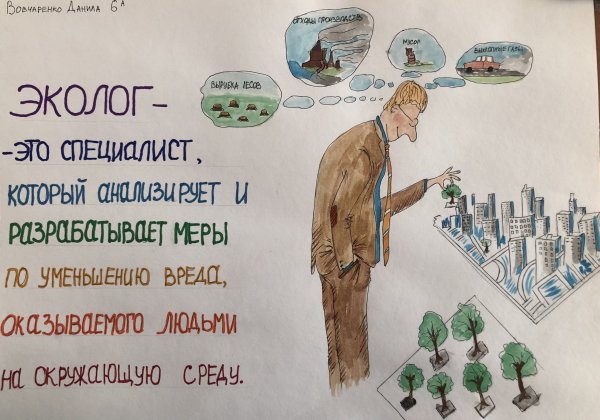 Вовчаренко Данила 6А
ОТХОДЫ ПРОИЗВОДСТВ
МУСОР
ВЫХЛОПНЫЕ ГАЗЫ
ВЫРУБКА ЛЕСОВ
ЭКОЛОГ-
-ЭТО СПЕЦИАЛИСТ,
КОТОРЫЙ АНАЛИЗИРУЕТ И
РАЗРАБАТЫВАЕТ МЕРЫ
ПО УМЕНЬШЕНИЮ ВРЕДА,
ОКАЗЫВАЕМОГО ЛЮДЬМИ
НА ОКРУЖАЮЩУЮ СРЕДУ.